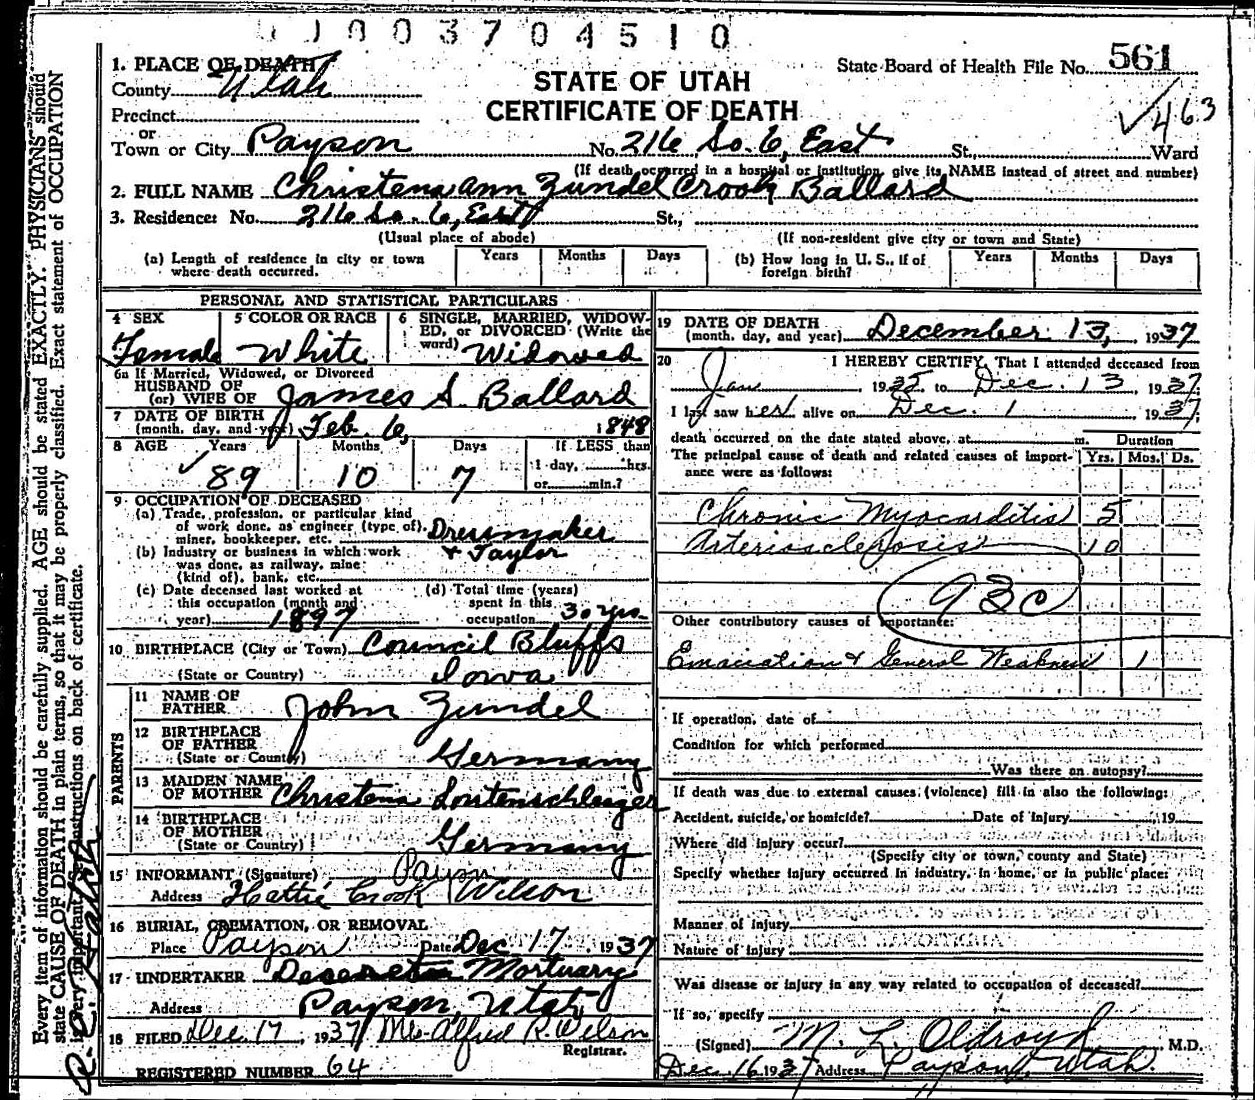 0003704510
1. PLACE OF DEATH
County Utah
State Board of Health File No. 561
STATE OF UTAH
CERTIFICATE OF DEATH
463
Precinct
or
Town or City Payson No. 216 So. 6, East St., Ward
(If death occurred in a hospital or institution, give its NAME instead of street and number)
2. FULL NAME Christena Ann Zundel Crook Ballard
3. Residence: No. 216 So. 6, East St.,
(Usual place of abode) (If non-resident give city or town and State)
(a) Length of residence in city or town where death occurred. Years Months Days
(b) How long in U. S., if of foreign birth? Years Months Days
PERSONAL AND STATISTICAL PARTICULARS
4 SEX Female
5 COLOR OR RACE White
6 SINGLE, MARRIED, WIDOWED, or DIVORCED (Write the word) Widowed
6a If Married, Widowed, or Divorced
HUSBAND OF
(or) WIFE OF James S. Ballard
7 DATE OF BIRTH
(month, day, and year) Feb. 6, 1848
8 AGE Years Months Days If LESS than
89 10 7 1 day, hrs.
or min.?
9 OCCUPATION OF DECEASED
(a) Trade, profession, or particular kind
of work done, as engineer (type of),
miner, bookkeeper, etc. Dressmaker
(b) Industry or business in which work & Taylor
was done, as railway, mine
(kind of), bank, etc.
(c) Date deceased last worked at
this occupation (month and
year) 1897
(d) Total time (years)
spent in this
occupation 30 yrs.
10 BIRTHPLACE (City or Town) Council Bluffs
(State or Country) Iowa
PARENTS
11 NAME OF
FATHER John Zundel
12 BIRTHPLACE
OF FATHER
(State or Country) Germany
13 MAIDEN NAME
OF MOTHER Christena
14 BIRTHPLACE
OF MOTHER
(State or Country) Germany
15 INFORMANT (Signature) Payson
Address Hattie Crook Wilson
16 BURIAL, CREMATION, OR REMOVAL
Place Payson Date Dec 17 1937
17 UNDERTAKER Mortuary
Address Payson, Utah
18 FILED Dec. 17, 1937 Alfred R. Wilson
Registrar.
REGISTERED NUMBER 64
19 DATE OF DEATH
(month, day, and year) December 13, 1937
20 I HEREBY CERTIFY, That I attended deceased from
Jan, 19 to Dec. 13, 1937
I last saw her alive on Dec. 1, 1937
death occurred on the date stated above, at m. Duration
The principal cause of death and related causes of importance were as follows: Yrs. Mos. Ds.
Chronic Myocarditis 5
Arteriosclerosis 10
93c
Other contributory causes of importance:
Emaciation & General Weakness 1
If operation, date of
Condition for which performed
Was there an autopsy?
If death was due to external causes (violence) fill in also the following:
Accident, suicide, or homicide? Date of injury , 19
Where did injury occur?
(Specify city or town, county and State)
Specify whether injury occurred in industry, in home, or in public place:
Manner of injury
Nature of injury
Was disease or injury in any way related to occupation of deceased?
If so, specify
(Signed) M. L. Oldroyd, M.D.
Dec 16 1937 Address Payson, Utah.
Every item of information should be carefully supplied. AGE should be stated EXACTLY. PHYSICIANS should
state CAUSE OF DEATH in plain terms, so that it may be properly classified. Exact statement of OCCUPATION
very important. Instructions on back of certificate.